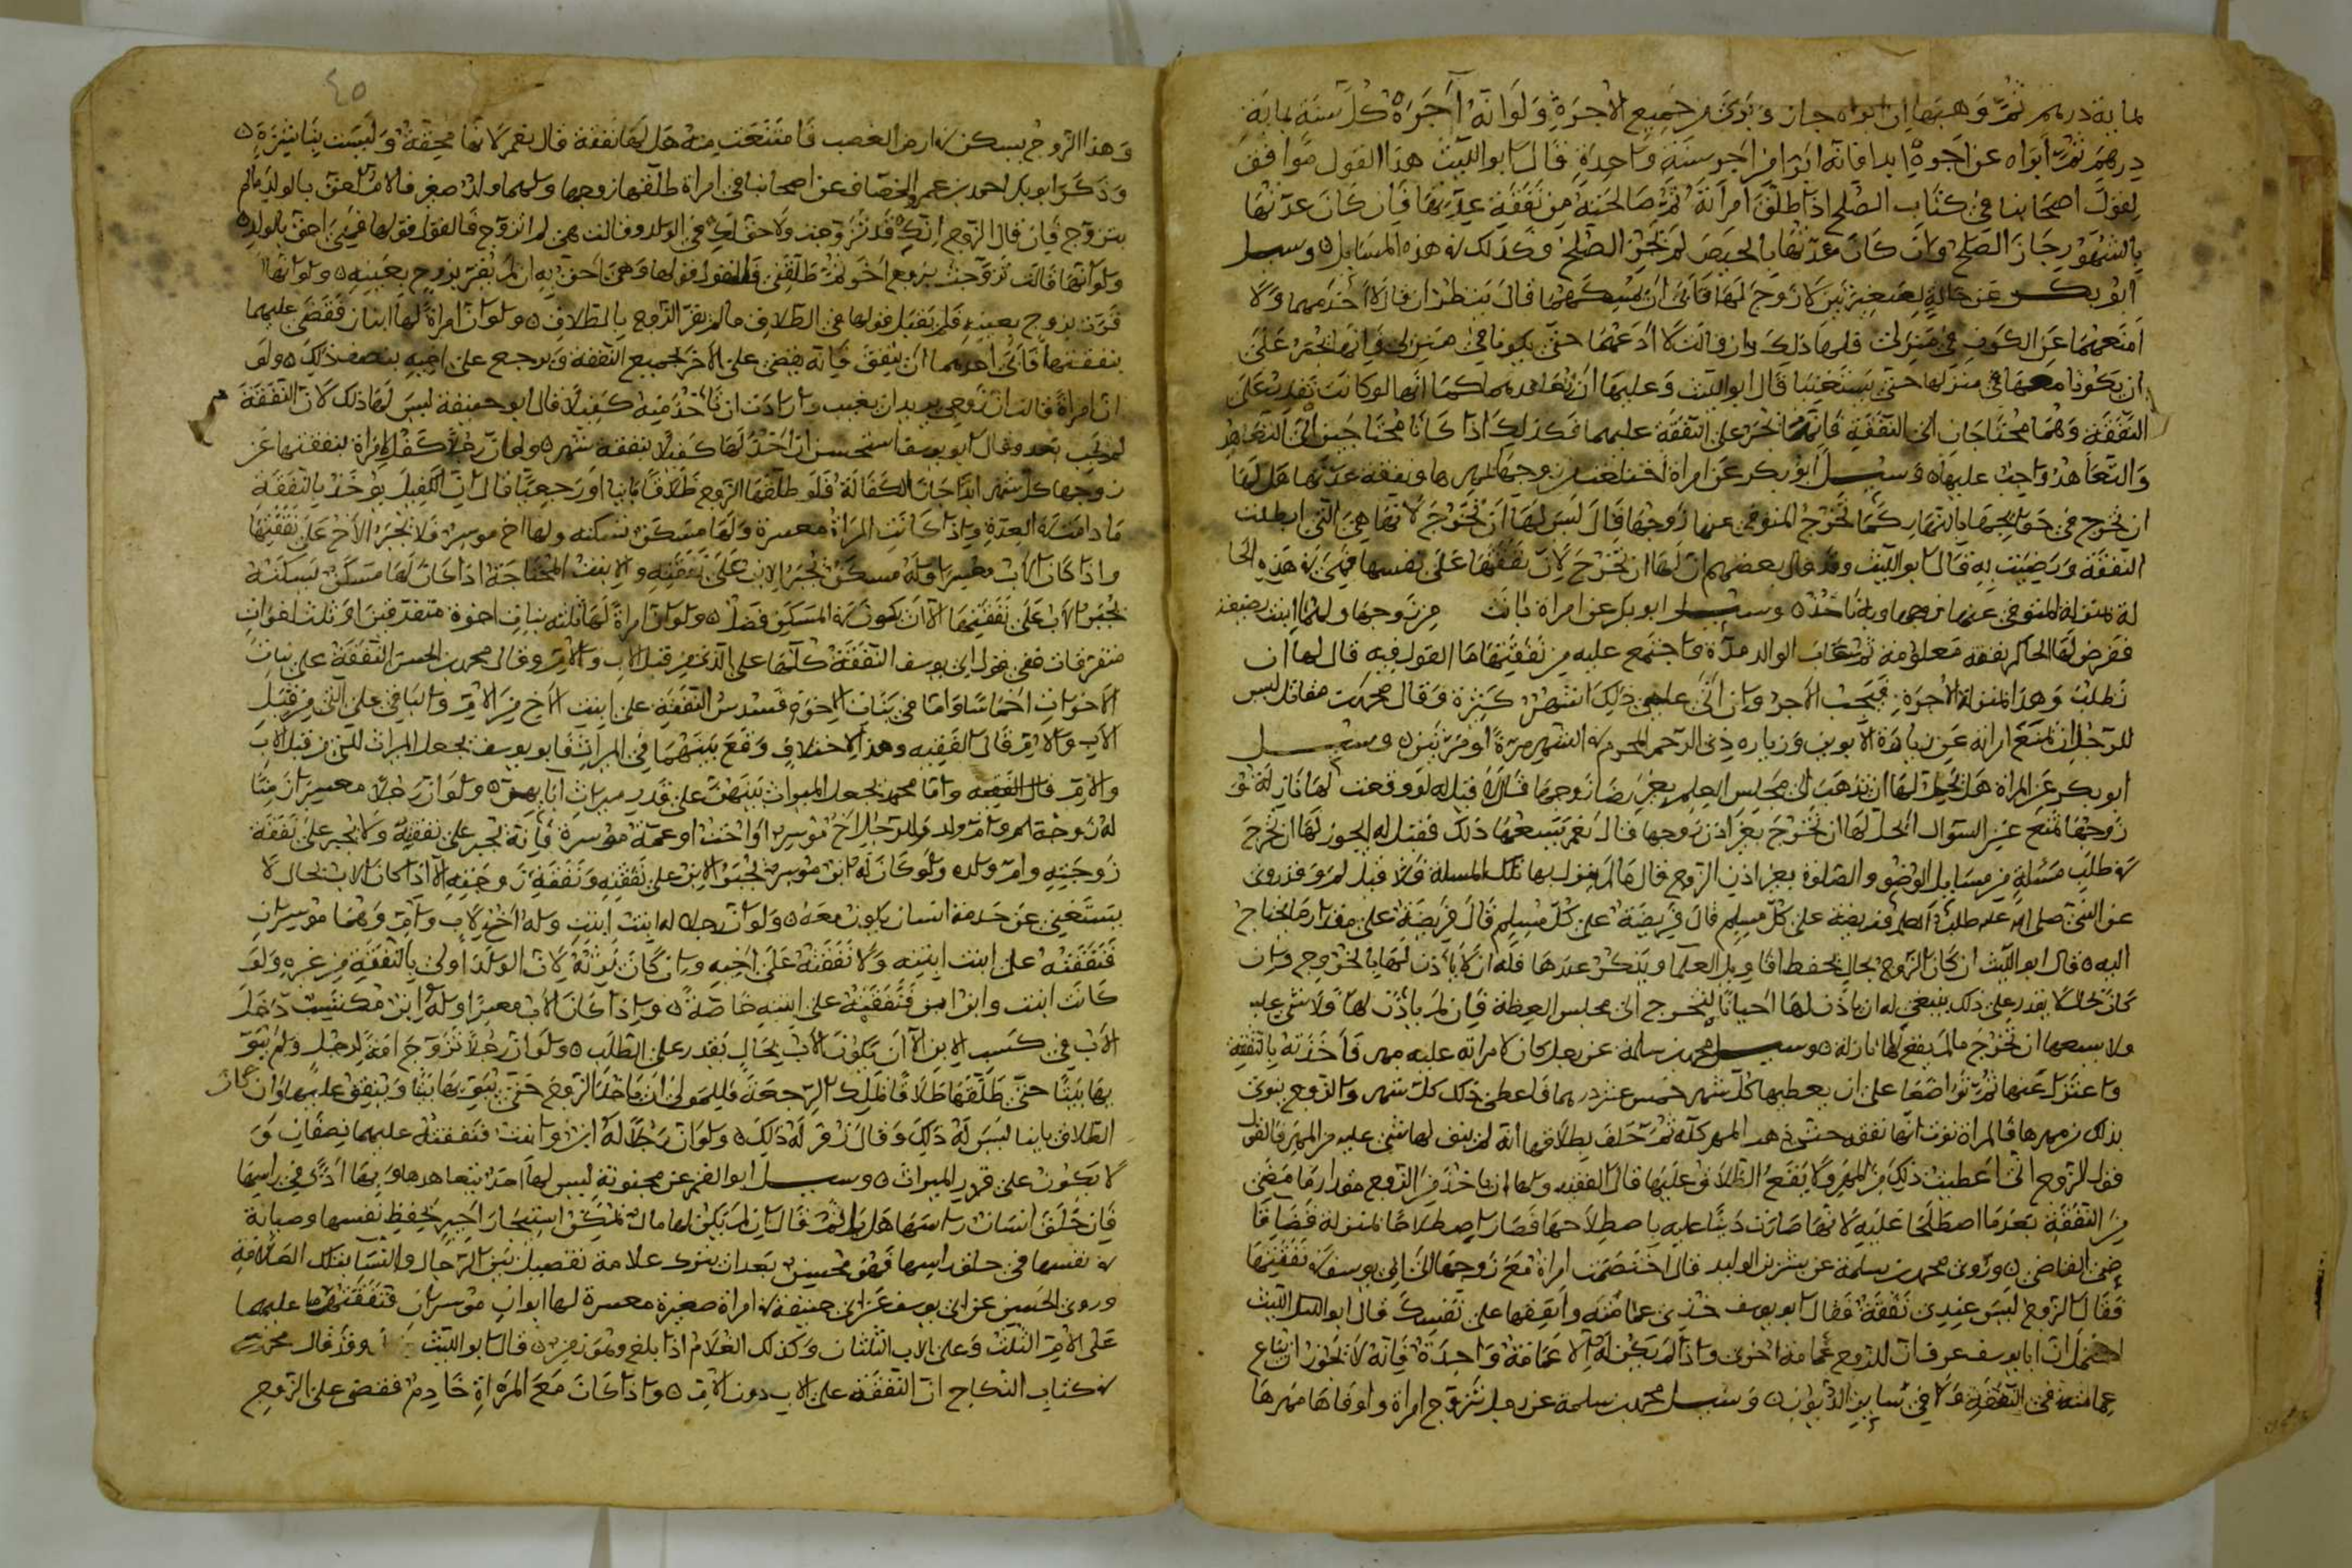 بماية درهم ثم وهبها ان ابراه جاز وبرئ من جميع الاجرة ولو انه آجره كل سنة بماية
درهم ثم ابراه عن اجره ابدا فانه ابراء من اجر سنة واحدة قال ابو الليث هذا القول موافق
لقول اصحابنا في كتاب الصلح اذا طلق امرأته ثم صالحته من نفقة عدتها فان كان عدتها
بالشهور جاز الصلح وان كان عدتها بالحيض لم يجز الصلح وكذلك في هذه المسايل وسيل
ابو بكر عن خالة لصغيرين لا زوج لها فابى ان تمسكهما قال ينظر ان قال لا اخدمهما ولا
امنعهما عن الكون في منزلي فلها ذلك وان قالت لا ادعهما حتى يكونا في منزلي فانها تجبر على
ان يكونا معها في منزلها حتى يستغنيا قال ابو الليث وعليها ان تعاهدهما كما انها لو كانت تقدر على
النفقة وهما محتاجان الى النفقة فانها تجبر على النفقة عليهما فكذلك اذا كانا محتاجين الى التعاهد
والتعاهد واجب عليها وسيل ابو بكر عن امراة اختلعت من زوجها بمهرها ونفقة عدتها هل لها
ان تخرج في حوايجها بالنهار كما تخرج المتوفى عنها زوجها قال ليس لها ان تخرج لانها هي التي ابطلت
النفقة ورضيت به قال ابو الليث وقد قال بعضهم ان لها ان تخرج لان نفقتها على نفسها فهي في هذه الحا
لة بمنزلة المتوفى عنها زوجها وبه ناخذ وسيل ابو بكر عن امراة بانت من زوجها ولها ابنت رضيعة
ففرض لها الحاكم نفقة معلومة ثم غاب الوالد مدة فاجتمع عليه من نفقتها ما القول فيه قال لها ان
تطلب وهذا بمنزلة الاجرة فيجب الاجر وان اتى على ذلك اشهر كثيرة وقال محمد بن مقاتل ليس
للرجل ان يمنع امراته عن زيارة الابوين وزياره ذي الرحم المحرم في الشهر مرة او مرتين وسيل
ابو بكر عن المراة هل يحل لها ان تذهب الى مجلس العلم بغير رضا زوجها قال لا قيل له لو وقعت لها نازلة
زوجها تمنع عن السوال ايحل لها ان تخرج بغير اذن زوجها قال نعم يسعها ذلك فقيل له ايجوز لها ان تخرج
في طلب مسئلة من مسايل الوضو والصلوة بغير اذن الزوج قال ما لم ينزل بها تلك المسلة فلا قيل لم وقد روى
عن النبي صلى الله عليه طلب العلم فريضة على كل مسلم قال فريضة على كل مسلم قال فريضة على مقدار ما يحتاج
اليه قال ابو الليث ان كان الزوج بحال يحفظ اقاويل العلما ويذكر عندها فله ان لا يأذن لها بالخروج وان
كان حاله لا يقدر على ذلك ينبغي له ان ياذن لها احيانا لتخرج الى مجلس العظة فان لم يأذن لها فلا شي عليه
ولا يسعها ان تخرج ما لم يقع لها نازلة وسيل محمد بن سلمة عن رجل كان لامراته عليه مهر فاخذته بالنفقة
واعتزلت عنها ثم تراضعا على ان يعطيها كل شهر خمس عشر درهما فاعطى ذلك كل شهر والزوج ينوي
بذلك من مهرها والمراة نوت انها نفقه حتى ذهب المهر كله ثم حلف بطلاقها انه لم يبق لها شي عليه من المهر فالقول
قول الزوج اني اعطيت ذلك من المهر ولا يقع الطلاق عليها قال الفقيه ولها ان تاخذ من الزوج مقدار ما مضى
من النفقة بعد ما اصطلحا عليه لانها صارت دينا عليه باصطلاحها فصار اصطلاحها بمنزلة قضا قا
ضي القاضي وروى محمد بن سلمة عن بشر بن الوليد قال اختصمت امراة مع زوجها الى ابي يوسف في نفقتها
فقال الزوج ليس عندي نفقة فقال ابو يوسف خذي عمامته وانفقها على نفسك قال ابو الليث
احتمل ان ابا يوسف عرف ان للزوج عمامة اخرى واذا لم يكن له الا عمامة واحدة فانه لا يجوز ان يباع
عمامته في النفقة ولا في ساير الديون وسيل محمد بن سلمة عن رجل تزوج امراة واوفاها مهرها
٤٥
وهذا الزوج يسكن في ارض الغصب فامتنعت منه هل لها نفقة قال نعم لانها محقة وليست بناشزة
وذكر ابو بكر احمد بن عمر الخصاف عن اصحابنا في امراة طلقها زوجها ولهما ولد صغير فالام احق بالولد ما لم
يتزوج فان قال الزوج انك قد تزوجت ولا حق لك في الولد وقالت هي لم اتزوج فالقول قولها فهي احق بالولد
ولو انها قالت تزوجت بزوج اخر ثم طلقني فالقول قولها وهي احق به ان لم يقر بزوج بعينه ولو انها
قرت بزوج بعينه فلم يقبل قولها في الطلاق ما لم يقر الزوج بالطلاق ولو ان امراة لها ابنان فقضى عليهما
بنفقتها فابى احدهما ان ينفق فانه يقضى على الاخر بجميع النفقة ويرجع على اخيه بنصف ذلك ولو
ان امراة قالت ان زوجي يريد ان يغيب وارادت ان تاخذ منه كفيلا قال ابو حنيفة ليس لها ذلك لان النفقة
لم تجب بعد وقال ابو يوسف استحسن ان اخذ لها كفيلا بنفقة شهر ولو ان رجلا كفل لامراة بنفقتها عن
زوجها كل شهر ابدا جازت الكفالة فلو طلقها الزوج طلاقا باينا او رجعيا قال ان الكفيل يوخذ بالنفقة
ما دامت في العدة واذا كانت المراة معسرة ولها مسكن تسكنه ولها اخ موسر فلا يجبر الاخ على نفقتها
واذا كان الاب معسرا وله مسكن يجبر الابن على نفقته والابنت المحتاجة اذا كان لها مسكن تسكنه
يجبر الاب على نفقتها الا ان يكون في المسكن فضل ولو ان امراة لها ثلثه بنات اخوة متفرقين او ثلث اخوات
متفرقات ففي قول ابي يوسف النفقة كلها على الذي من قبل الاب والام وقال محمد بن الحسن النفقة على بنات
الاخوات اخماسا واما في بنات الاخوة فسدس النفقة على ابنت الاخ من الام والباقي على التي من قبل
الاب والام قال الفقيه وهذا الاختلاف وقع بينهما في الميراث فابو يوسف يجعل الميراث للتي من قبل الاب
والام قال الفقيه واما محمد يجعل الميراث بينهن على قدر ميراث ابايهن ولو ان رجلا معسرا زمنا
له زوجة وام ولد وللرجل اخ موسر او اخت او عمة موسرة فانه يجبر على نفقته ولا يجبر على نفقة
زوجته وام ولده ولو كان له ابن موسر يجبر الابن على نفقته ونفقة زوجته الا اذا كان الاب بحال لا
يستغني عن خدمة انسان يكون معه ولو ان رجلا له ابنت ابنت وله اخ لاب وام وهما موسران
فنفقته على ابنت ابنته ولا نفقته على اخيه وان كان يرثه لان الولد اولى بالنفقة من غيره ولو
كانت ابنت وابن ابن فنفقته على ابنته خاصة واذا كان الاب معسرا وله ابن مكتسب دخل
الاب في كسب الابن الا ان يكون الاب بحال يقدر على الطلب ولو ان رجلا تزوج امة لرجل ولم يبو
بها بيتا حتى طلقها طلاقا يملك الرجعة فللمولى ان ياخذ الزوج حتى يبوي بها بيتا وينفق عليها وان كان
الطلاق باينا ليس له ذلك وقال زفر له ذلك ولو ان رجلا له ابن وابنت فنفقته عليهما نصفان و
لا يكون على قدر الميراث وسيل ابو القسم عن مجنونة ليس لها احد يتعاهدها وبها اذى في راسها
فان حلق انسان راسها هل ياثم قال ان لم يكن لها مال يمكن استيجار اجير يحفظ نفسها وصيانة
في نفسها في حلق راسها فهو محسن بعد ان يترك علامة تفصيل بين الرجال والنسا بتلك العلامة
وروى الحسن عن ابي يوسف عن ابي حنيفة في امراة صغيرة معسرة لها ابوان موسران فنفقتها عليهما
على الام الثلث وعلى الاب الثلثان وكذلك الغلام اذا بلغ وهو زمن قال ابو الليث وقد قال محمد
في كتاب النكاح ان النفقة على الاب دون الام واذا كان مع المراة خادم فقضى على الزوج